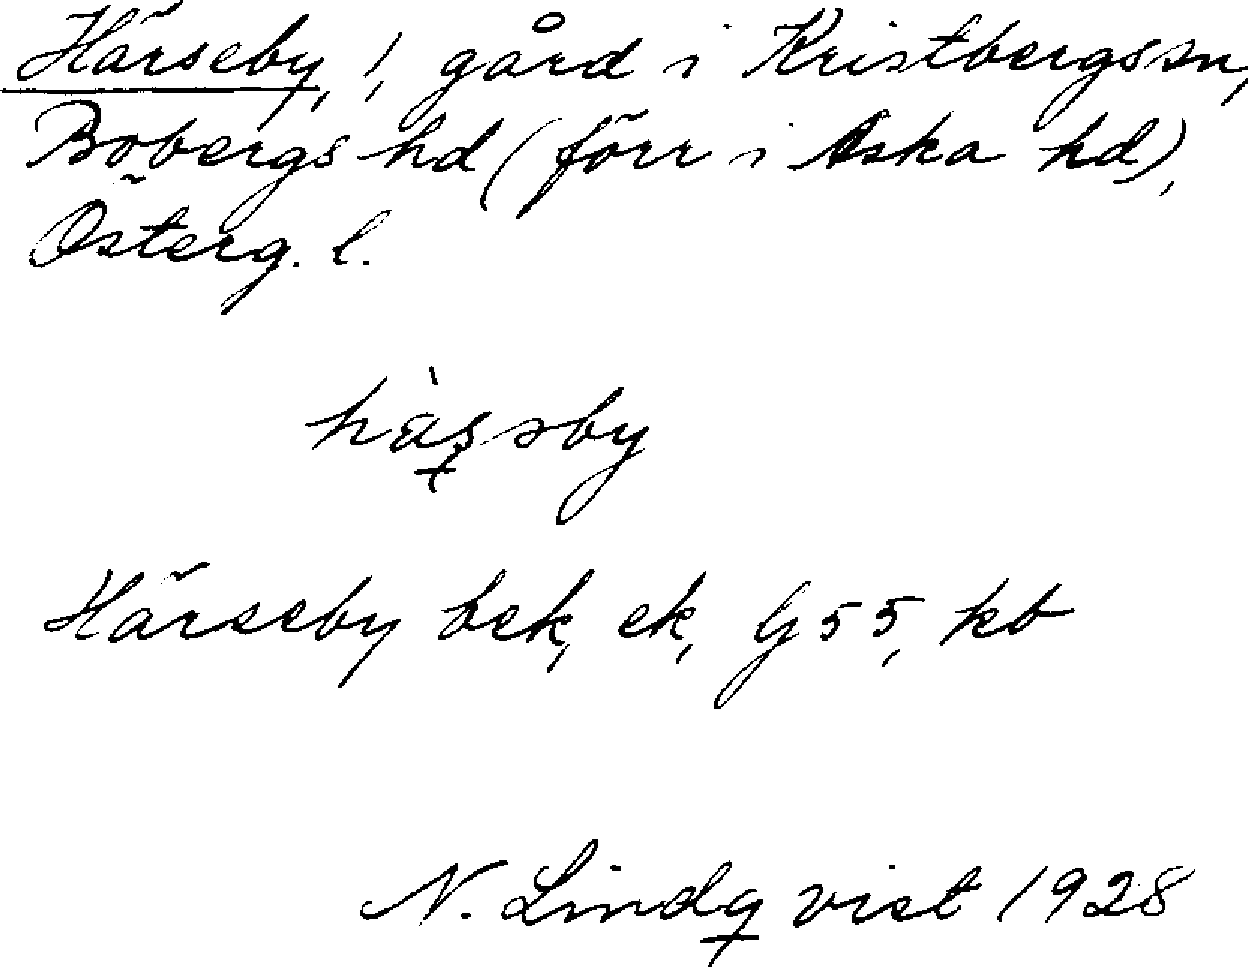 Härseby, 1, gård i Kristbergs sn,
Bobergs hd (förr i Aska hd),
Österg. l.
Härseby bek, ek, G 55, kb
N. Lindqvist 1928